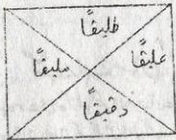 طليقًا
عليقًا
مليقًا
دقيقًا